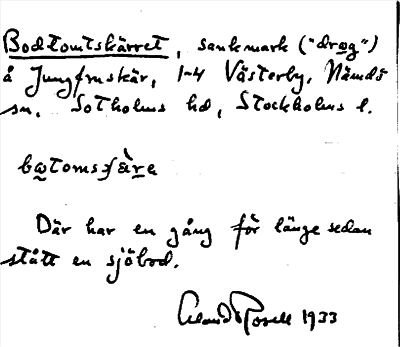 Bodtomtskärret, sankmark ("drog")
å Jungfruskär, 1-4 Västerby, Nämdö
sn, Sotholms hd, Stockholms l.
Där har en gång för länge sedan
stått en sjöbod.
1933